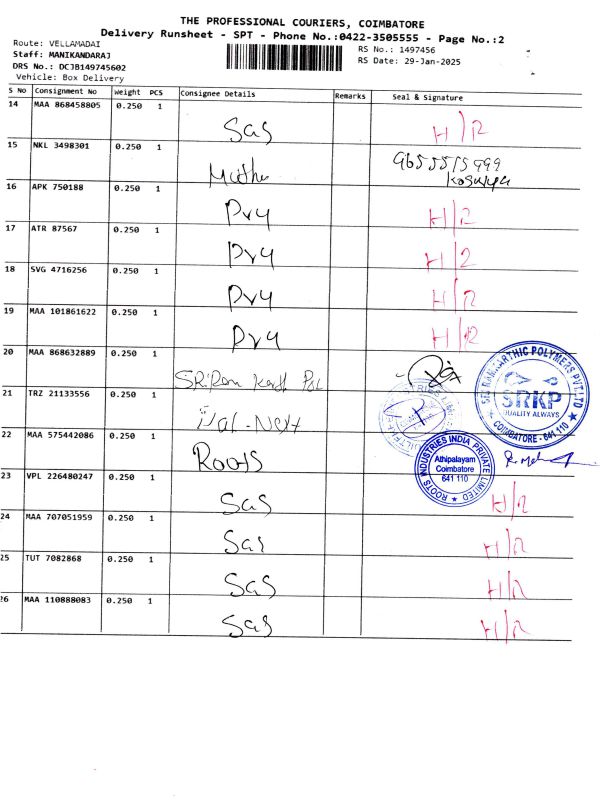 THE PROFESSIONAL COURIERS, COIMBATORE
Delivery Runsheet - SPT - Phone No.:0422-3505555 - Page No.:2
Route: VELLAMADAI
Staff: MANIKANDARAJ
DRS No.: DCJB149745602
Vehicle: Box Delivery
RS No.: 1497456
RS Date: 29-Jan-2025
S No Consignment No Weight PCS Consignee Details Remarks Seal & Signature
14 MAA 868458805 0.250 1
Sas H/R
15 NKL 3498301 0.250 1
9655515999
16 APK 750188 0.250 1
Pry H/R
17 ATR 87567 0.250 1
Pry H/R
18 SVG 4716256 0.250 1
Pry H/R
19 MAA 101861622 0.250 1
Pry H/R
20 MAA 868632889 0.250 1
SRi Ram
SRI RAMKARTHIC POLYMERS PVT.LTD
SRKP
QUALITY ALWAYS
COIMBATORE - 641 110
21 TRZ 21133556 0.250 1
22 MAA 575442086 0.250 1
Roots
ROOTS INDUSTRIES INDIA PRIVATE LIMITED
Athipalayam
Coimbatore
641 110
23 VPL 226480247 0.250 1
Sas H/R
24 MAA 707051959 0.250 1
Sas H/R
25 TUT 7082868 0.250 1
Sas H/R
26 MAA 110888083 0.250 1
Sas H/R